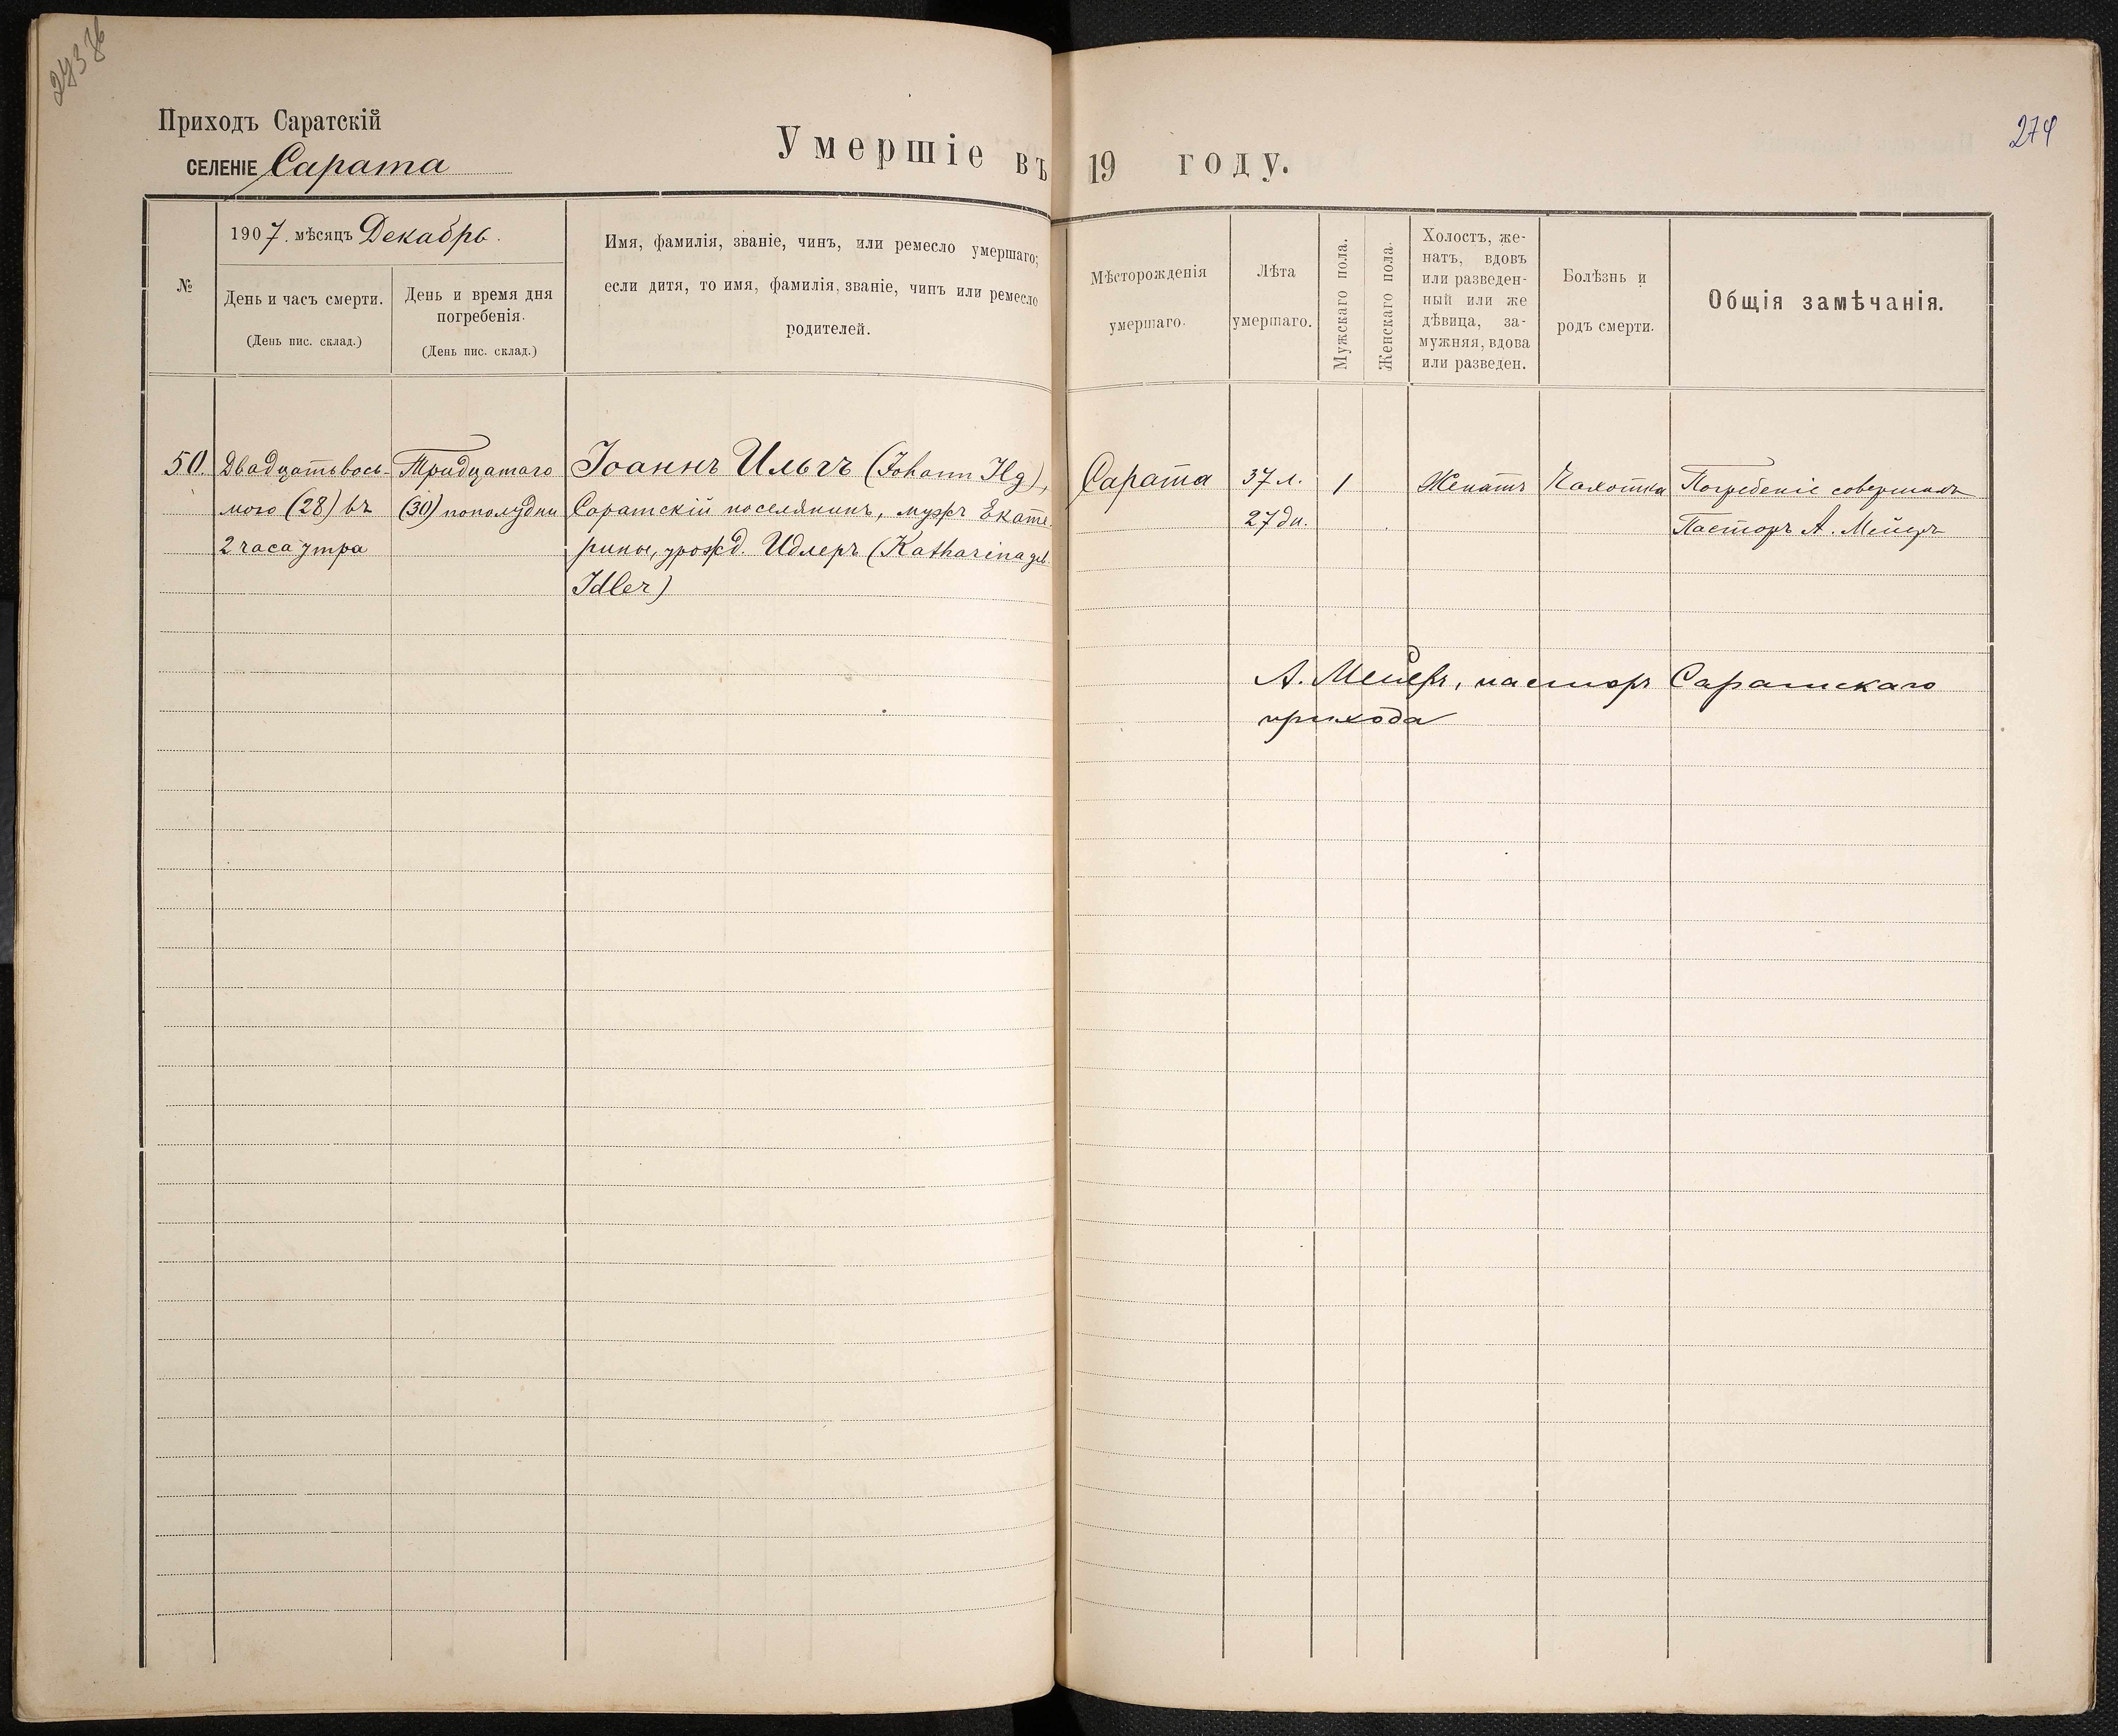 Приходъ Саратскій
СЕЛЕНІЕ Сарата
Умершіе въ 19 году.
274
№
1907. мѣсяцъ Декабрь.
День и часъ смерти.
(День пис. склад.)
День и время дня
погребенія.
(День пис. склад.)
Имя, фамилія, званіе, чинъ, или ремесло умершаго;
если дитя, то имя, фамилія, званіе, чинъ или ремесло
родителей.
Мѣсторожденія
умершаго.
Лѣта
умершаго.
Мужскаго пола.
Женскаго пола.
Холостъ, же-
натъ, вдовъ
или разведен-
ный или же
дѣвица, за-
мужняя, вдова
или разведен.
Болѣзнь и
родъ смерти.
Общія замѣчанія.
50.
Двадцатьвось-
мого (28) въ
2 часа утра
Тридцатаго
(30) пополудни
Іоаннъ Ильгъ (Johann Ilg),
Саратскій поселянинъ, мужъ Екате-
рины, урожд. Идлеръ (Katharina geb.
Idler)
Сарата
37 л.
27 дн.
1
Женатъ
Чахотка
Погребеніе совершилъ
Пасторъ А. Мейеръ
А. Мейеръ, пасторъ Саратскаго
прихода